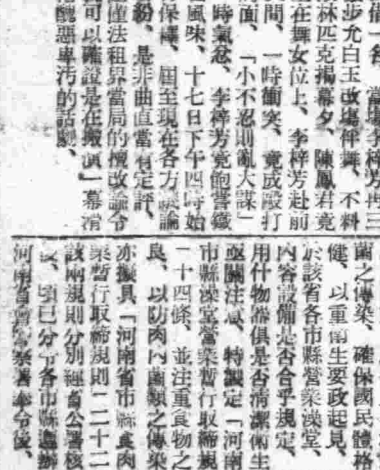 借一名李梓芳再三
步允白玉改場伴舞、不料
林匹克揚幕夕、陳鳳君竟
在舞女位上、李梓芳赴前
間、一時衝突、竟成毆打
面、「小不忍則亂大謀」
時氣忿、李梓芳竟飽嘗鐵
風味、十七日下午四時始
保釋、屆至現在各方議論
紛、是非曲直當有定評、
僅法租界當局的擅改諭令
可以確證是在搬演一幕滑
醜惡卑污的話劇、
菌之傳染、確保國民體格
健、以重衛生要政起見、
於該省各市縣營業澡堂、
內容設備是否合乎規定、
用什物器俱是否清潔衛生
亟關注意、特製定「河南
市縣澡堂營業暫行取締規
二十四條、並注重食物之
良、以防肉內菌類之傳染
亦擬具「河南省市縣食肉
業暫行取締規則」二十二
該兩規則分別經省公署核
後、頃已分令各市縣遵辦
河南省奉令後、